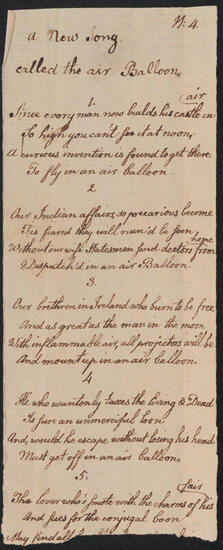 No: 4.
A New Song
called the air Balloon
1.
Since every man now builds his castle in air
So high you can't see it at noon,
A cureous invention is found to get there
To fly in an air balloon.
2
Our Indian affairs so precarious become
Tis feared they will ruin'd be soon
Without our wise Statesmen send doctors from home
Dispatch'd in an air Balloon.
3.
Our brethren in Ireland who burn to be free
And as great as the man in the moon,
With inflammable air, all projectors will be
And mount up in an air balloon.
4
He who wantonly taxes the living & Dead
Is sure an unmerciful loon
And, would he escape without losing his head
Must get off in an air balloon,
5.
The lover who's smote with the charms of his fair
And sues for the conjugal boon
May find